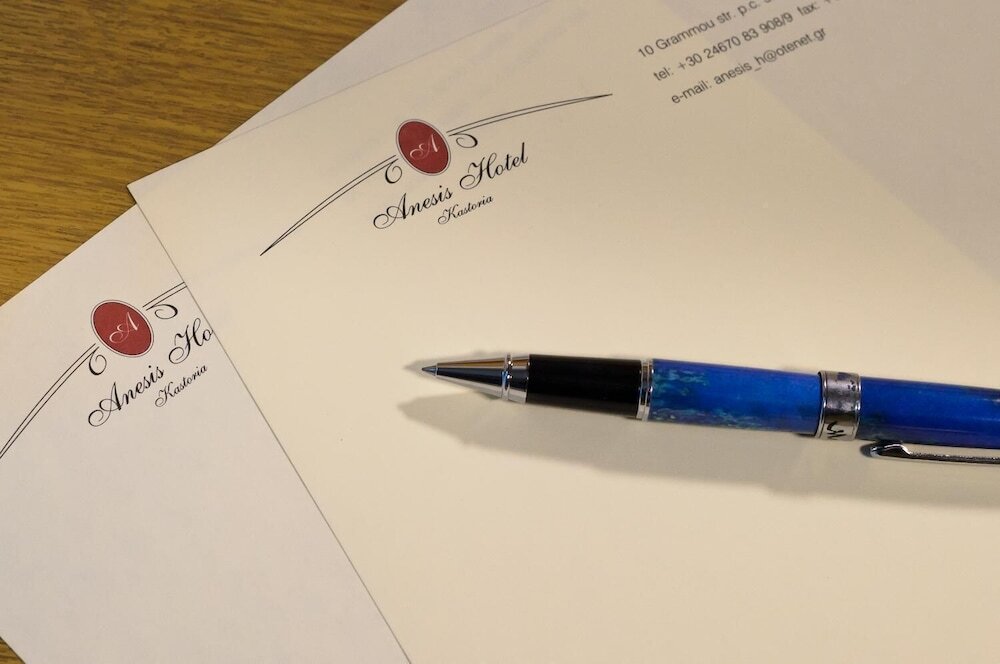 10 Grammou str. p.c.
tel: +30 24670 83 908/9 fax:
e-mail: anesis_h@otenet.gr
A
Anesis Hotel
Kastoria
A
Anesis Ho
Kastoria